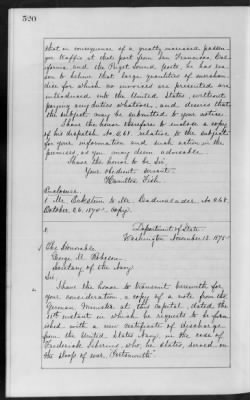 520
that in consequence of a greatly increased passen-
ger traffic at that port from San Francisco Cal-
ifornia and the Puget Sound ports, he has rea-
son to believe that large quantities of merchan-
dise for which no invoices are presented are
introduced into the United States, without
paying any duties whatever, and desires that
the subject may be submitted to your notice.
I have the honor therefore to enclose a copy
of his despatch, No. 268, relative to the subject
for your information and such action in the
premises, as you may deem advisable.
I have the honor to be Sir,
Your obedient servant,
Hamilton Fish
Enclosure.
Mr. Eckstein to Mr. Cadwalader No. 268
October 26, 1875. Copy.
Department of State
Washington November 13, 1875
The Honorable
George M. Robeson
Secretary of the Navy
Sir,
I have the honor to transmit herewith for
your consideration a copy of a note from the
German Minister at this Capital, dated the
11th instant in which he requests to be furn-
ished with a new certificate of discharge
from the United States Navy, in the case of
Frederick Siberius, who, he states, served on
the sloop of war "Portsmouth"